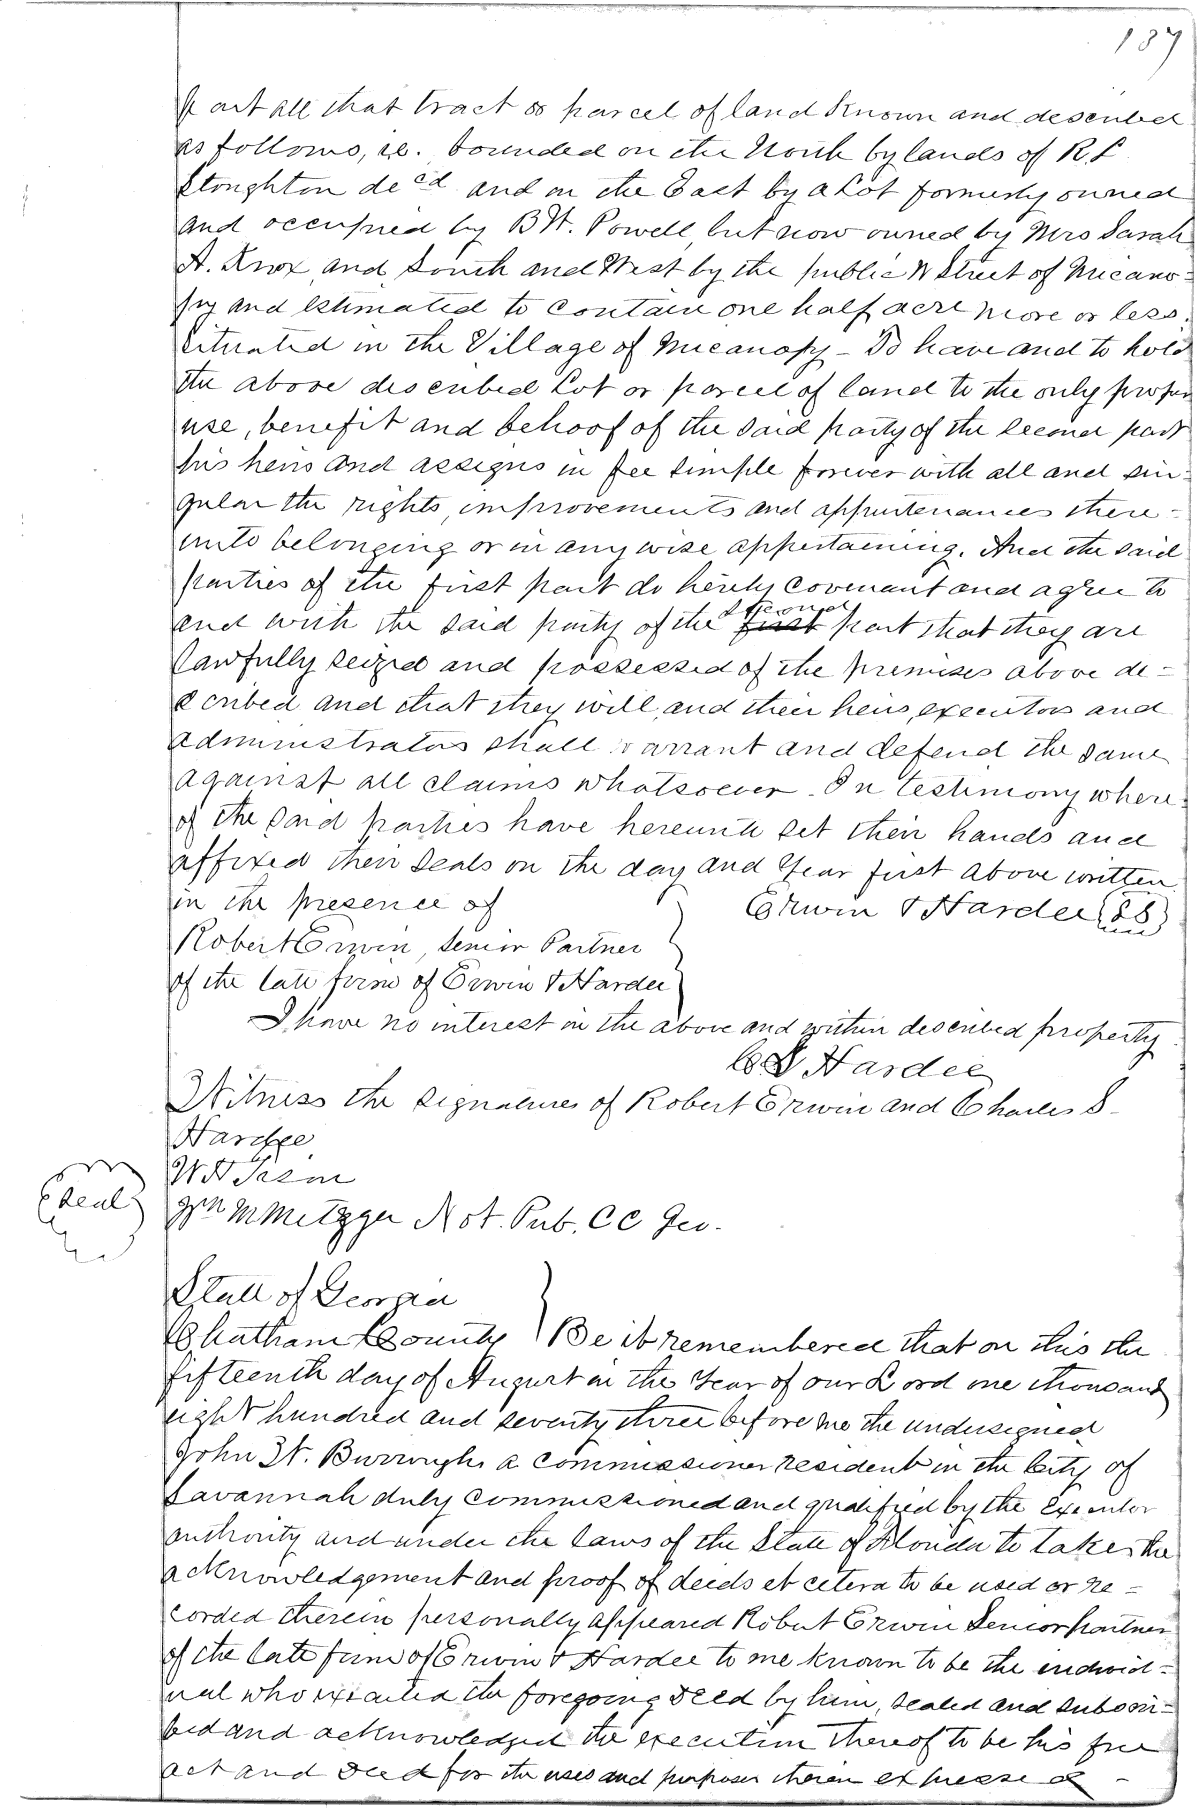 137
part all that tract or parcel of land known and described
as follows, ie. bounded on the North by lands of R. L
Stoughton decd and on the East by a Lot formerly owned
and occupied by B W. Powell, but now owned by Mrs Sarah
A. Knox, and South and West by the public Street of Micano-
py and estimated to contain one half acre more or less.
situated in the Village of Micanopy - To have and to hold
the above described Lot or parcel of land to the only proper
use, benefit and behoof of the said party of the second part
his heirs and assigns in fee simple forever with all and sin-
gular the rights, improvements and appurtenances there-
unto belonging or in any wise appertaining. And the said
parties of the first part do hereby covenant and agree to
and with the said party of the second first part that they are
lawfully seized and possessed of the premises above de-
scribed and that they will, and their heirs, executors and
administrators shall warrant and defend the same
against all claims whatsoever. In testimony where-
of the said parties have hereunto set their hands and
affixed their seals on the day and Year first above written
in the presence of Erwin & Hardee (LS)
Robert Erwin, Senior Partner
of the late firm of Erwin & Hardee
I have no interest in the above and within described property
C S Hardee
Witness the signatures of Robert Erwin and Charles S.
Hardee
W H
Seal
Wm M Metzger Not. Pub. C C Geo.
State of Georgia
Chatham County } Be it remembered that on this the
fifteenth day of August in the Year of our Lord one thousand
eight hundred and seventy three before me the undersigned
John W. Burroughs a Commissioner resident in the City of
Savannah duly commissioned and qualified by the Executor
authority and under the laws of the State of Florida to take the
acknowledgement and proof of deeds et cetera to be used or re-
corded therein personally appeared Robert Erwin Senior partner
of the late firm of Erwin & Hardee to me known to be the individ-
ual who executed the foregoing Deed by him, sealed and subscri-
bed and acknowledged the execution thereof to be his free
act and Deed for the uses and purposes therein expressed -